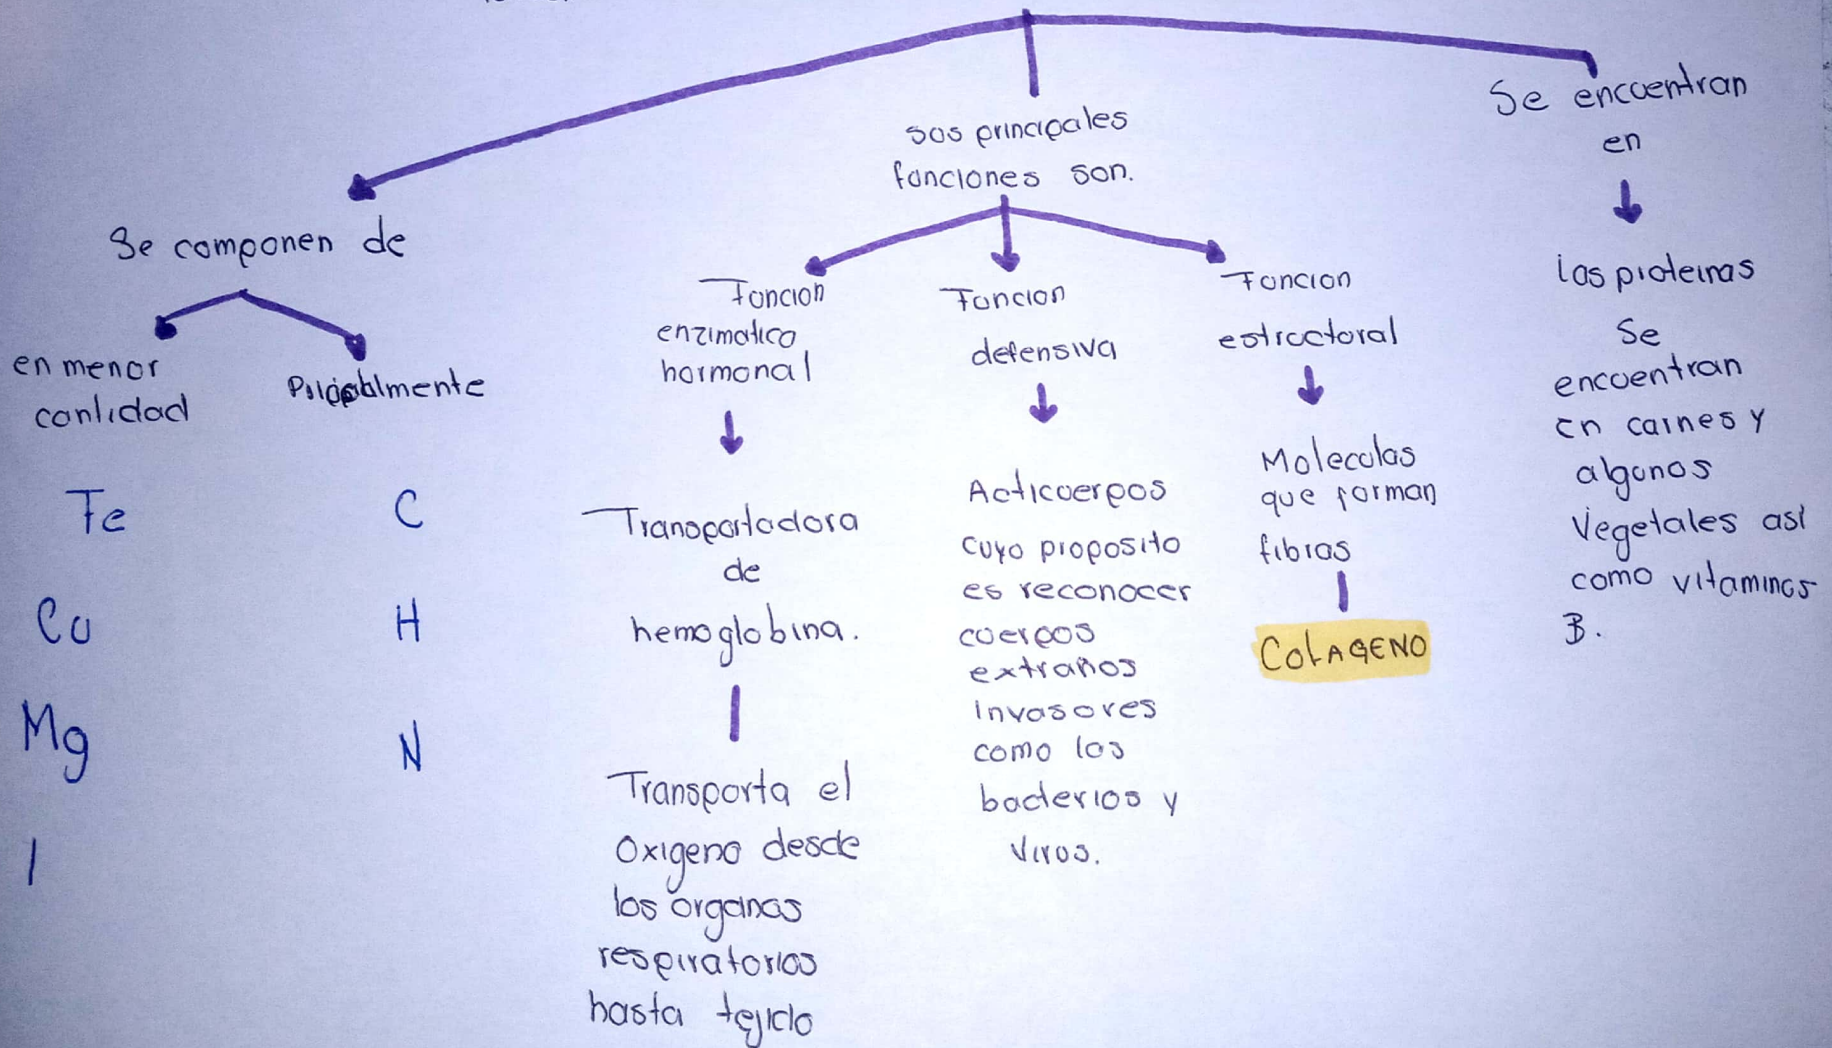 Se componen de
en menor
cantidad
Fe
Cu
Mg
I
Principalmente
C
H
N
sus principales
funciones son.
Funcion
enzimatica
hormonal
Transportadora
de
hemoglobina.
Transporta el
Oxigeno desde
los organos
respiratorios
hasta tejido
Funcion
defensiva
Acticuerpos
cuyo proposito
es reconocer
cuerpos
extraños
invasores
como las
bacterias y
virus.
Funcion
estructural
Moleculas
que forman
fibras
COLAGENO
Se encuentran
en
las proteinas
Se
encuentran
En carnes y
algunos
Vegetales así
como vitaminas
B.